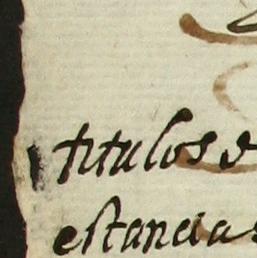 titulos d
estancias